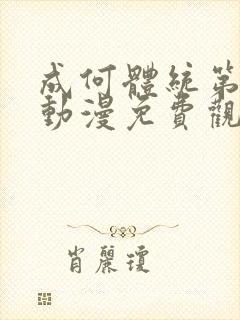 成何體統第
動漫免費觀
肖麗瓊